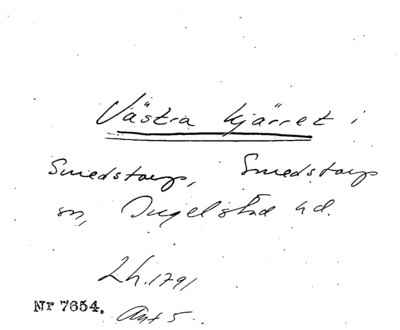 Västra kjärret i
Smedstorp, Smedstorp
sn, Ingelstad hd.
Lh. 1791
Nr 7654. Akt 5.